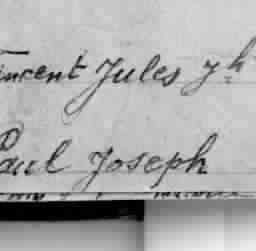 Vincent Jules Jh
Paul Joseph